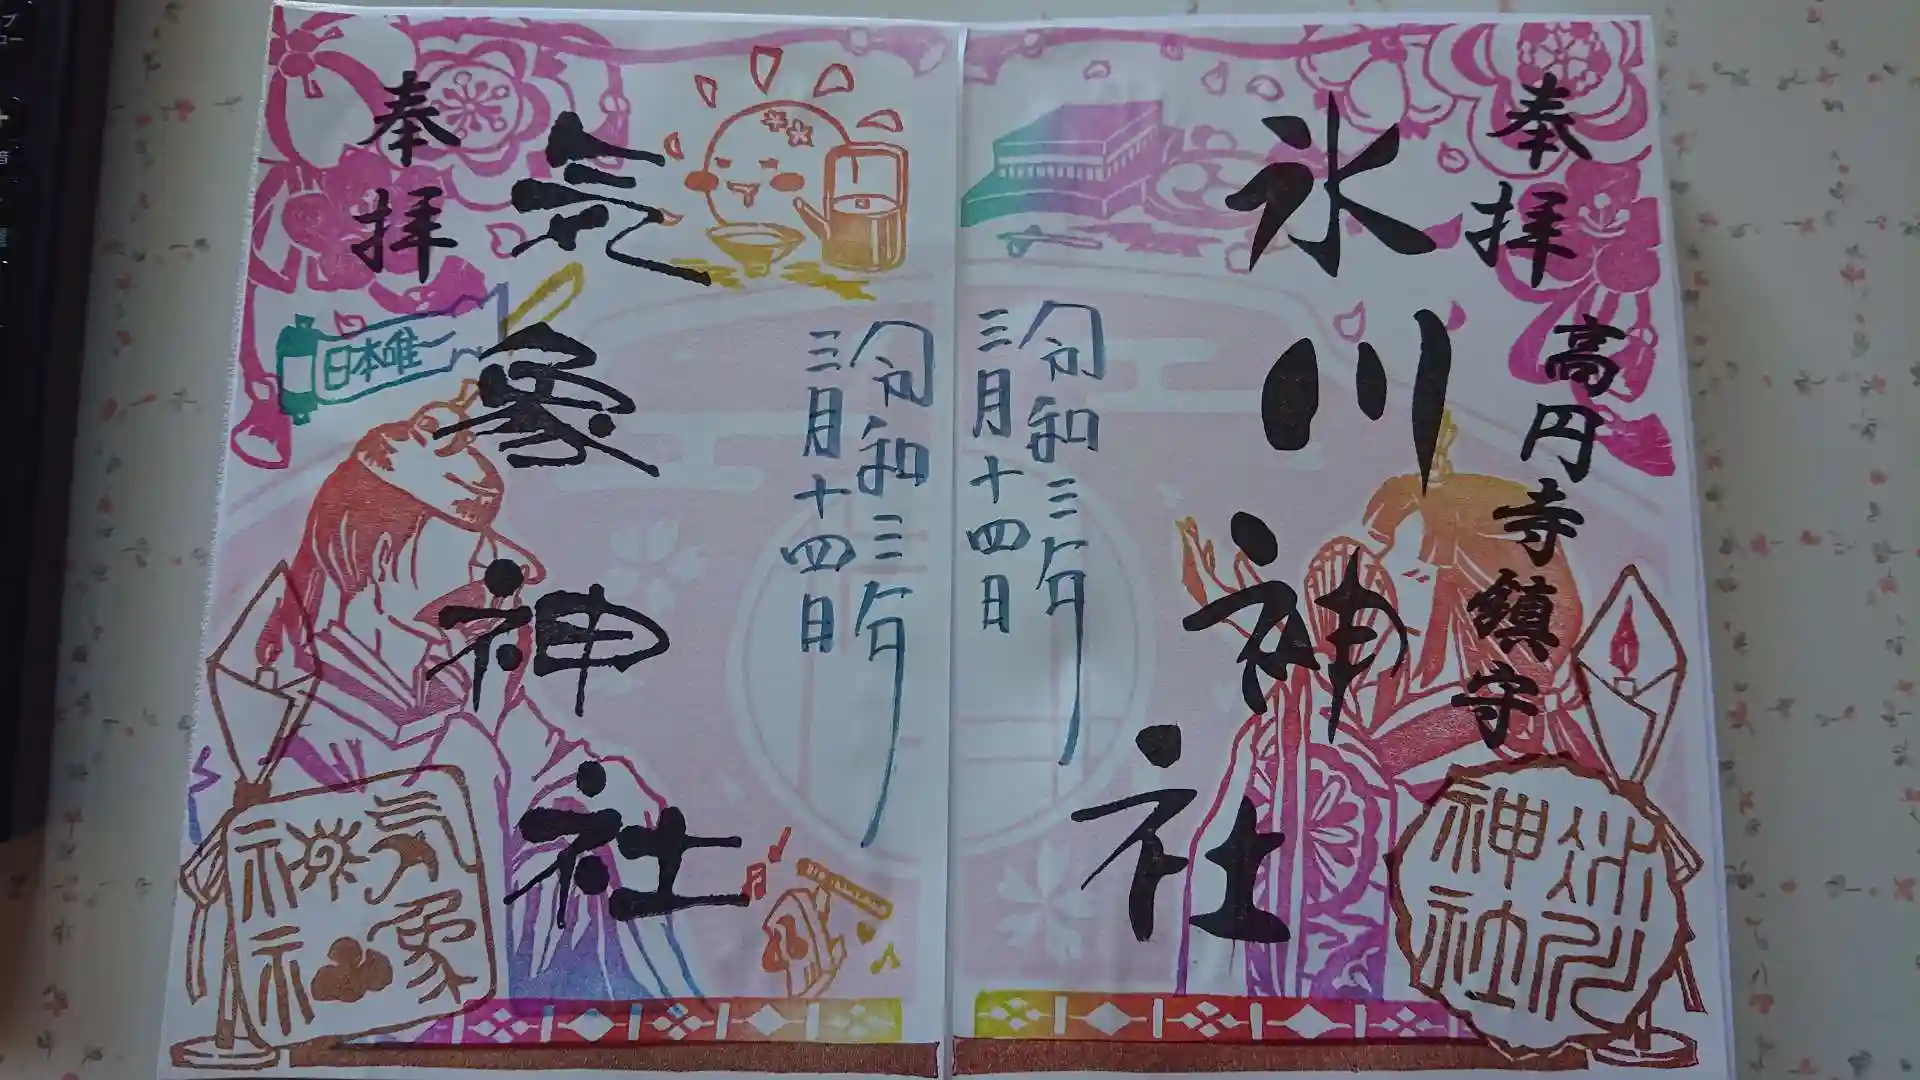 奉拝
高円寺鎮守
氷川神社
氷川
神社
令和三年
三月十四日
令和三年
三月十四日
気象神社
奉拝
日本唯一
気象
神社